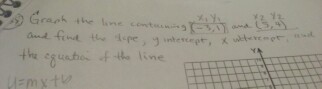 x₁ y₁ x₂ y₂
Graph the line containing (-3,1) and (3,4)
and find the slope, y intercept, x intercept, and
the equation of the line
y=mx+b
y